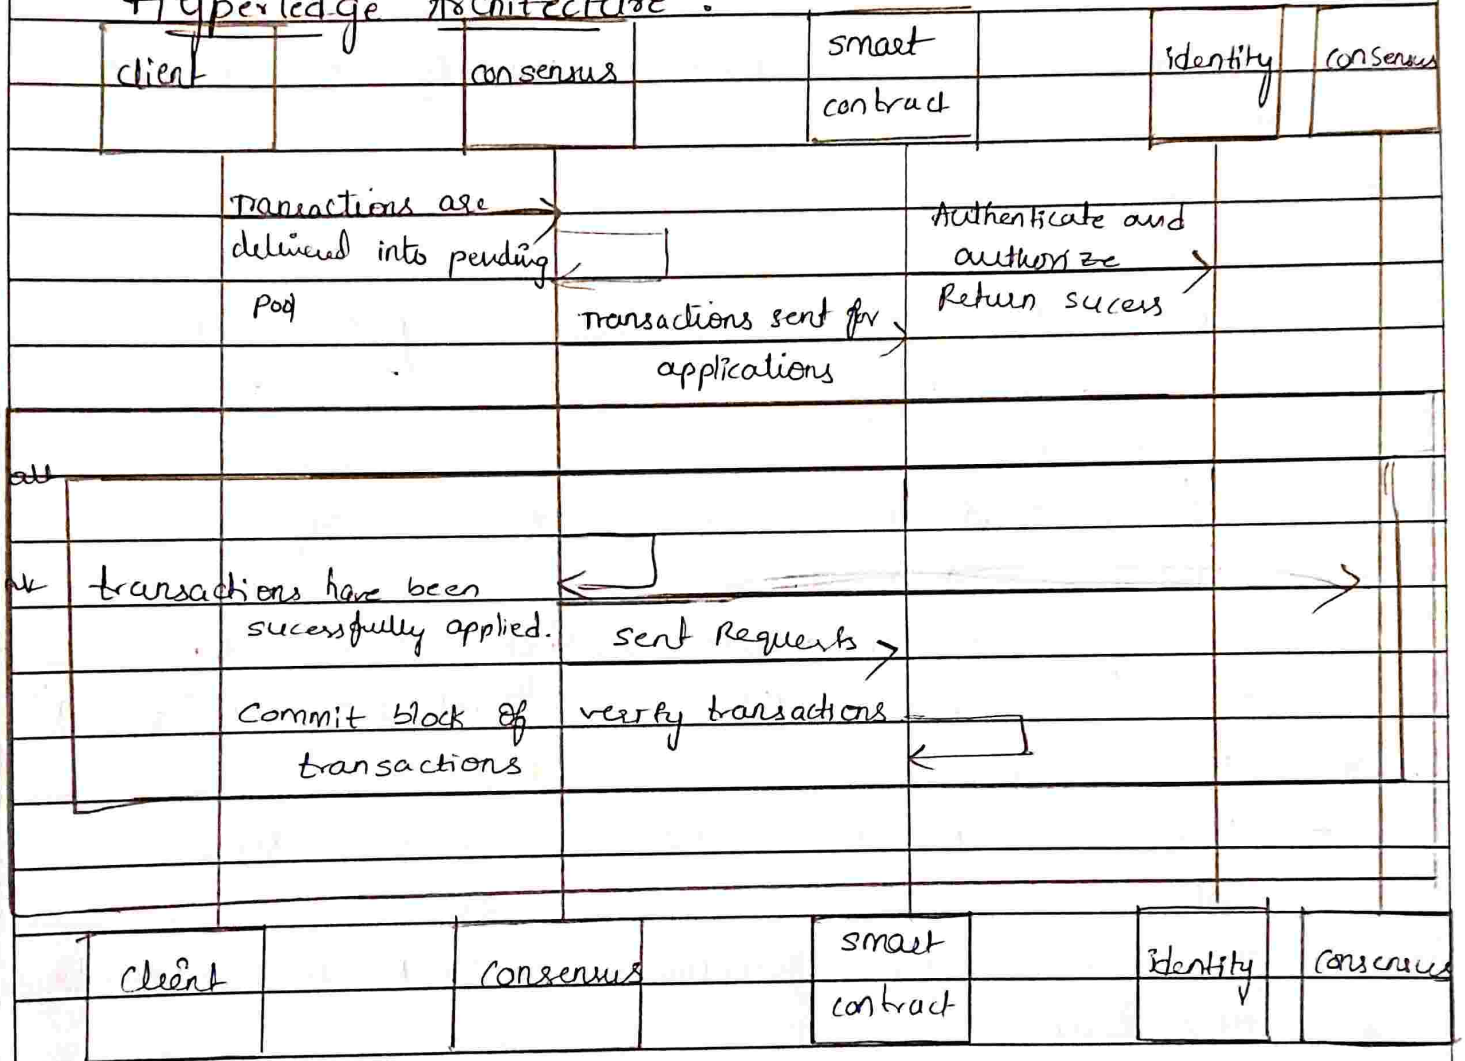 Hyperledge Architecture :
client
consensus
smart
contract
identity
consensus
Transactions are
delivered into pending
pool
Transactions sent for
applications
Authenticate and
authorize
Return sucess
transactions have been
sucessfully applied.
sent Requests
Commit block of
transactions
verify transactions
client
consensus
smart
contract
identity
consensus